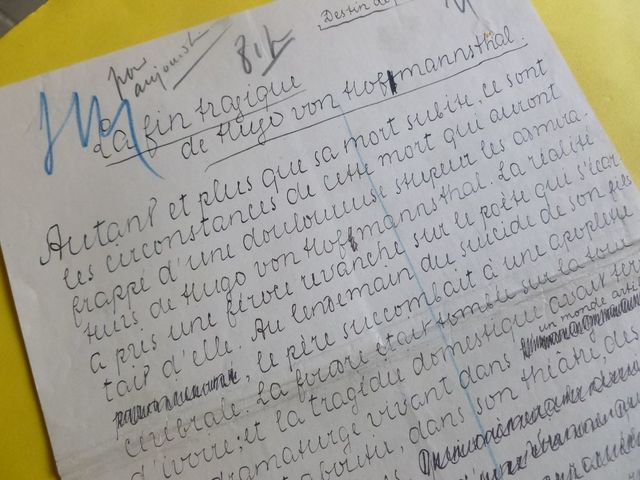 Destin de
pour
aujourd'hui
81/2
La fin tragique
de Hugo von Hofmannsthal.
Autant et plus que sa mort subite, ce sont
les circonstances de cette mort qui auront
frappé d'une douloureuse stupeur les admira-
teurs de Hugo von Hofmannsthal. La réalité
a pris une féroce revanche sur le poète qui s'écar-
tait d'elle. Au lendemain du suicide de son fils
, le père succombait à une apoplexie
cérébrale. La foudre était tombée sur la tour
d'ivoire; et la tragédie domestique avait
dramaturge vivant dans un monde
dans son théâtre, des